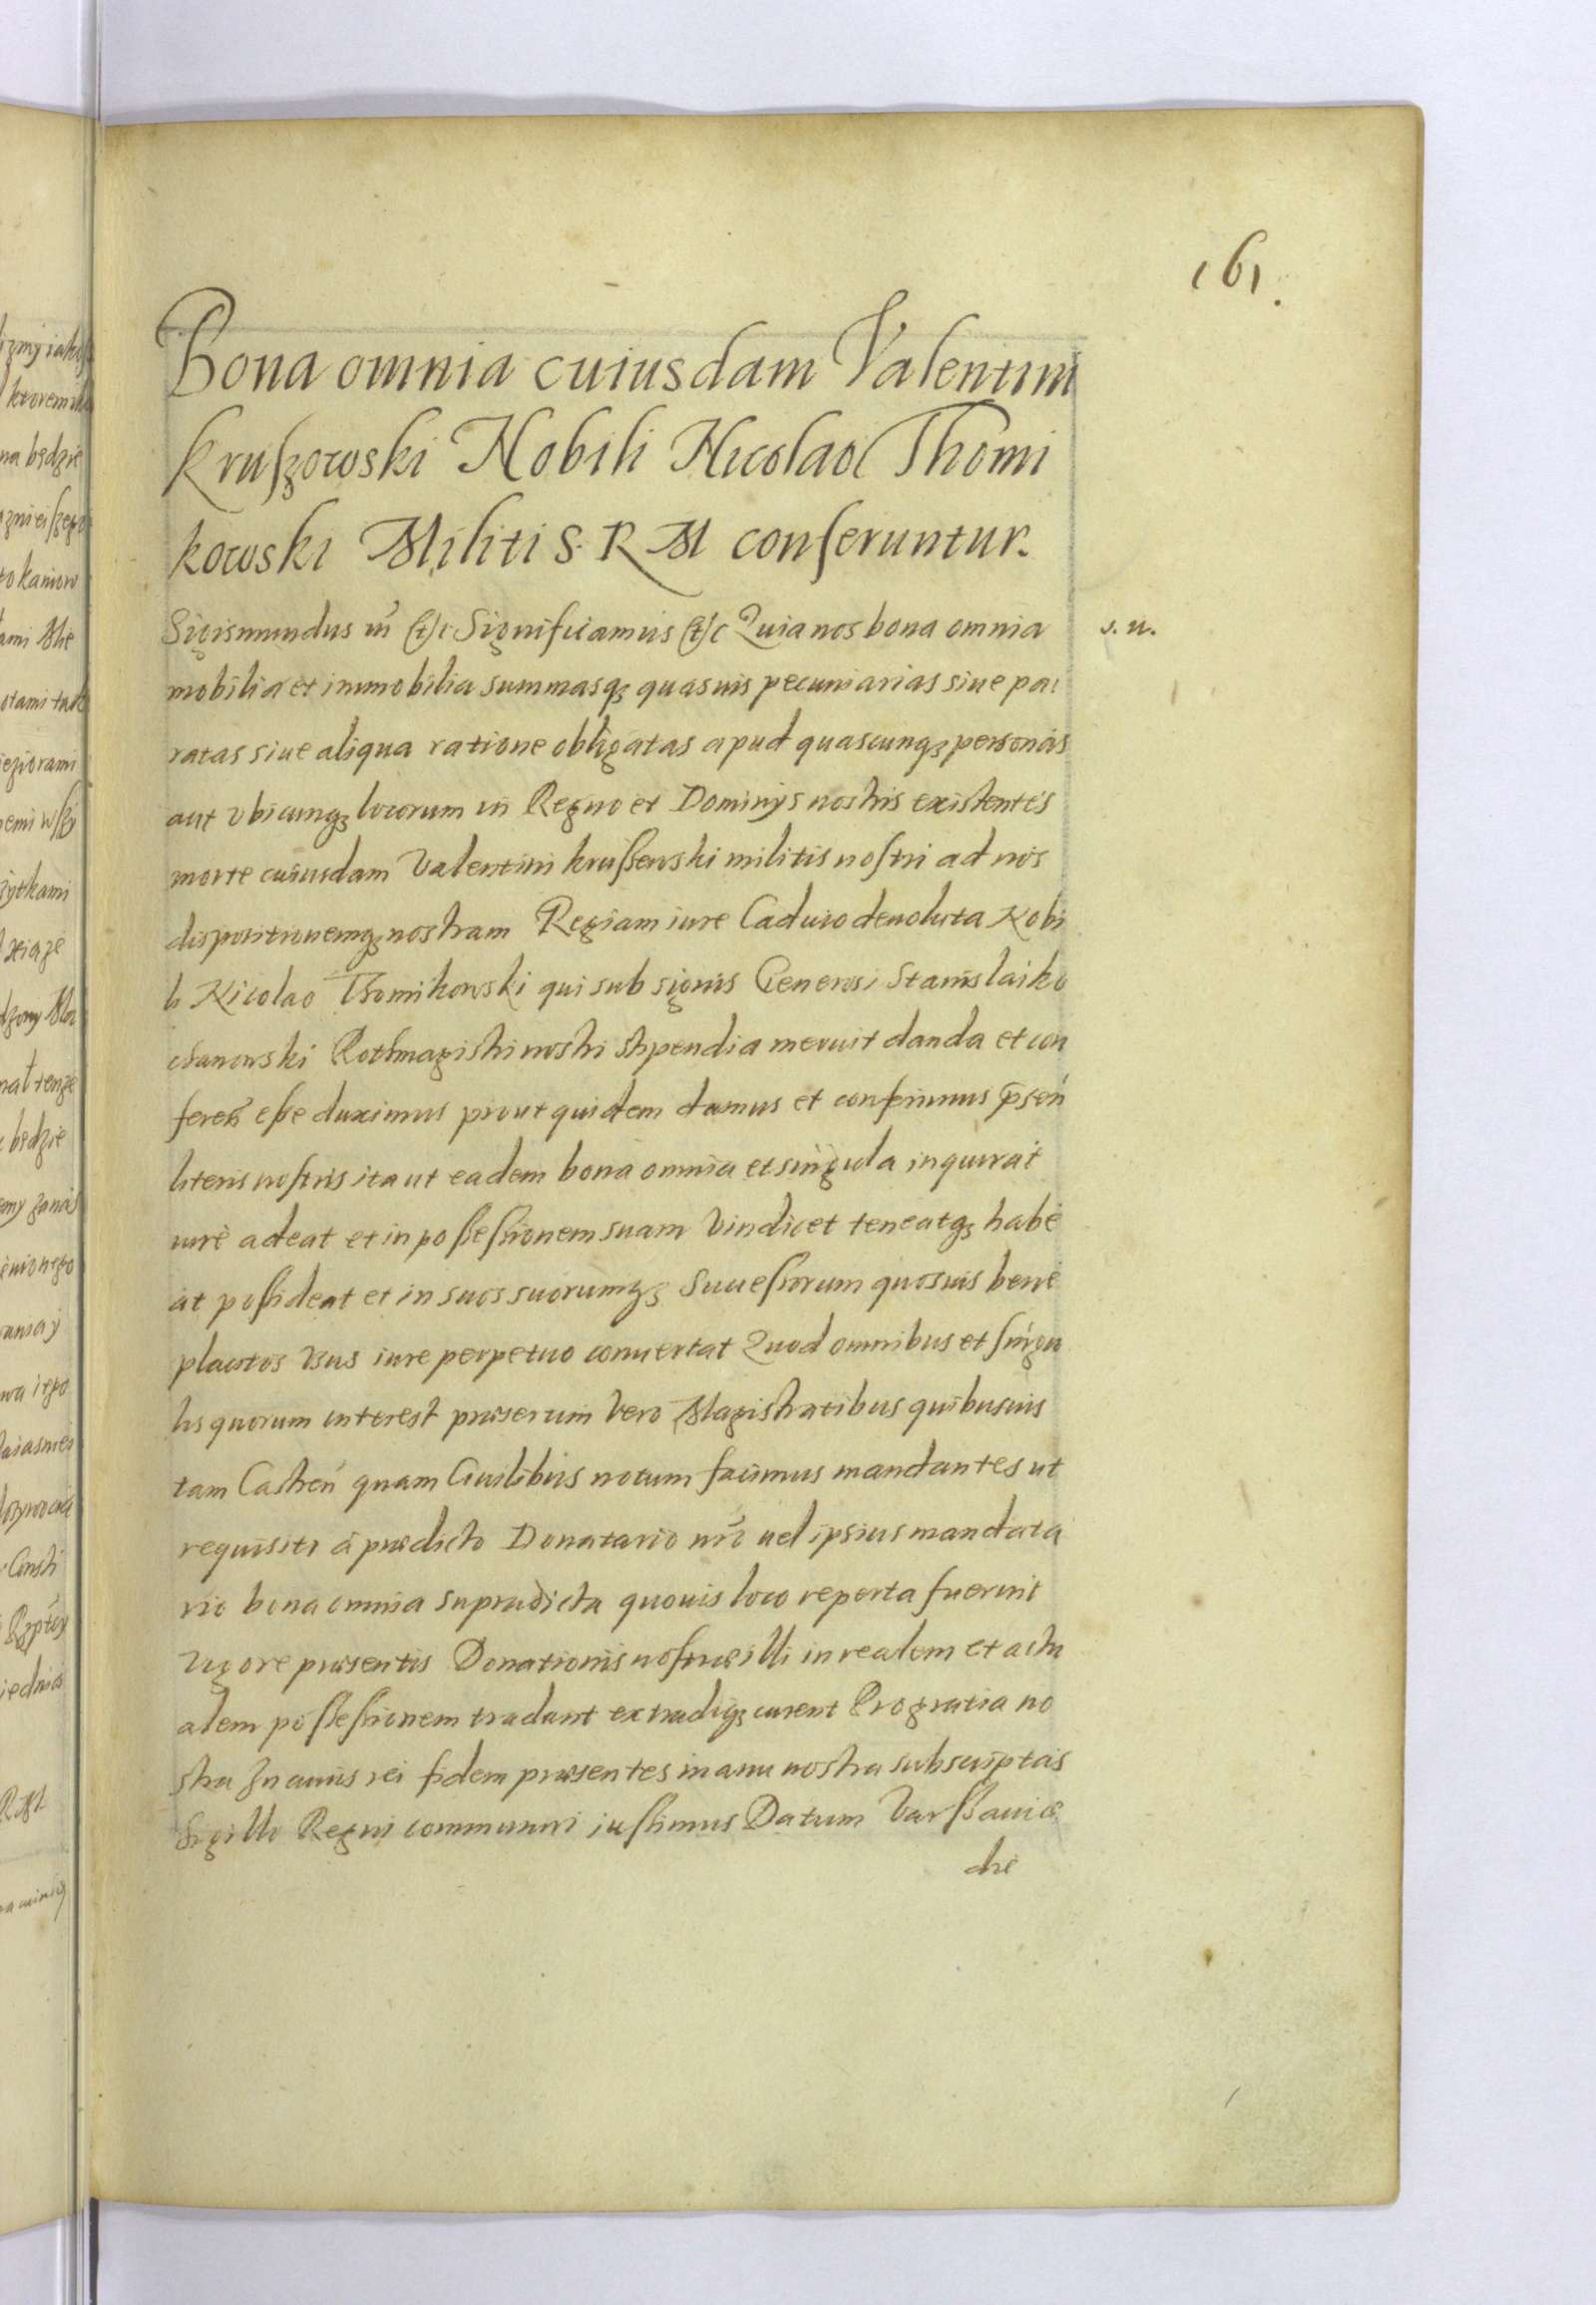 161.
Bona omnia cuiusdam Valentini
Kruszowski Nobili Nicolao Thomi
kowski Militi S. R M conferuntur.
Sigismundus iii etc Significamus etc Quia nos bona omnia
s. n.
mobilia et immobilia summasqꝫ quasuis pecuniarias siue pa
ratas siue aliqua ratione obligatas apud quascunqꝫ personas
aut vbicunqꝫ locorum in Regno et Dominijs nostris existentes
morte cuiusdam Valentini krussewski militis nostri ad nos
dispositionemqꝫ nostram Regiam iure Caduco deuoluta Nobi
li Nicolao Thomikowski qui sub signis Generosi Stanislai ko
chanowski Rothmagistri nostri stipendia meruit danda et con
feren̄ esse duximus prout quidem damus et conferimus p̄sen̄
literis nostris ita ut eadem bona omnia et singula inquirat
iure adeat et in possessionem suam Vindicet teneatqꝫ habe
at possideat et in suos suorumqꝫ Successorum quosuis bene
placitos Vsus iure perpetuo conuertat Quod omnibus et singu
lis quorum interest præsertim Vero Magistratibus quibusuis
tam Castren̄ quam Ciuilibus notum facimus mandantes ut
requisiti à prædicto Donatario nr̄o uel ipsius mandata
rio bona omnia supradicta quouis loco reperta fuerint
Vigore præsentis Donationis nostræ illi in realem et actu
alem possessionem tradant extradiqꝫ curent Pro gratia no
stra In cuius rei fidem præsentes manu nostra subscriptas
Sigillo Regni communiri iussimus Datum Varssauiæ
die